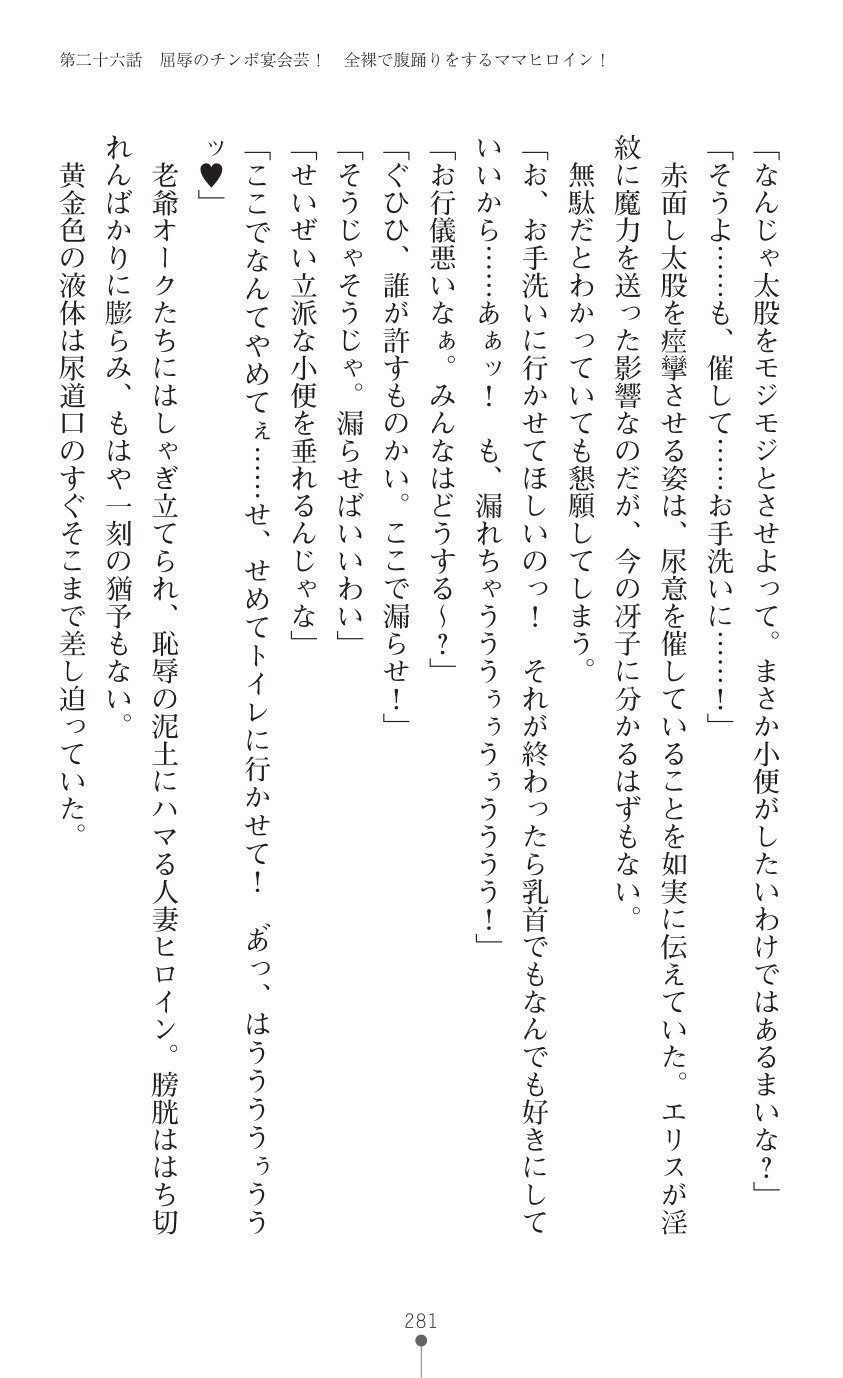 第二十六話　屈辱のチンポ宴会芸！　全裸で腹踊りをするママヒロイン！
「なんじゃ太股をモジモジとさせよって。まさか小便がしたいわけではあるまいな？」
「そうよ……も、催して……お手洗いに……！」
　赤面し太股を痙攣させる姿は、尿意を催していることを如実に伝えていた。エリスが淫
紋に魔力を送った影響なのだが、今の冴子に分かるはずもない。
　無駄だとわかっていても懇願してしまう。
「お、お手洗いに行かせてほしいのっ！　それが終わったら乳首でもなんでも好きにして
いいから……あぁッ！　も、漏れちゃうううぅぅうぅうううう！」
「お行儀悪いなぁ。みんなはどうする～？」
「ぐひひ、誰が許すものかい。ここで漏らせ！」
「そうじゃそうじゃ。漏らせばいいわい」
「せいぜい立派な小便を垂れるんじゃな」
「ここでなんてやめてぇ……せ、せめてトイレに行かせて！　あ゛っ、はうううぅうう
ッ♥」
　老爺オークたちにはしゃぎ立てられ、恥辱の泥土にハマる人妻ヒロイン。膀胱ははち切
れんばかりに膨らみ、もはや一刻の猶予もない。
　黄金色の液体は尿道口のすぐそこまで差し迫っていた。
281